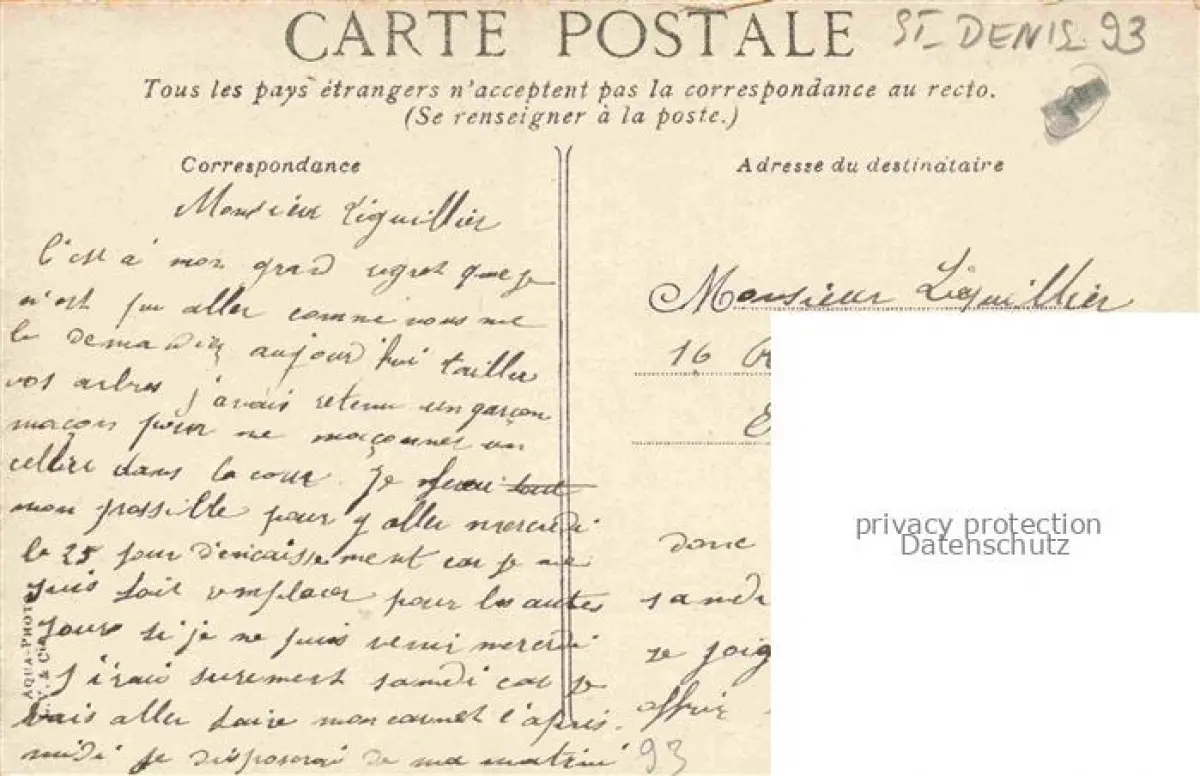 CARTE POSTALE
ST-DENIS. 93
Tous les pays étrangers n'acceptent pas la correspondance au recto.
(Se renseigner à la poste.)
Correspondance
Monsieur Liguillier
C'est à mon grand regret que je
n'est pu aller comme vous me
le demandiez aujourd'hui tailler
vos arbres j'avais retenu un garçon
maçon pour me maçonner un
cellier dans la cour. Je ferai tout
mon possible pour y aller mercredi
le 25 jour d'encaissement car je me
suis fait remplacer pour les autres
jours si je ne puis venir mercredi
j'irai surement samdi car je
vais aller faire mon carnet l'après-
midi je disposerai de ma matiné
93
AQUA-PHOTO
L. V. & Cie
Adresse du destinataire
Monsieur Liguillier
16
Donc
samdi
je joig
offrir
privacy protection
Datenschutz